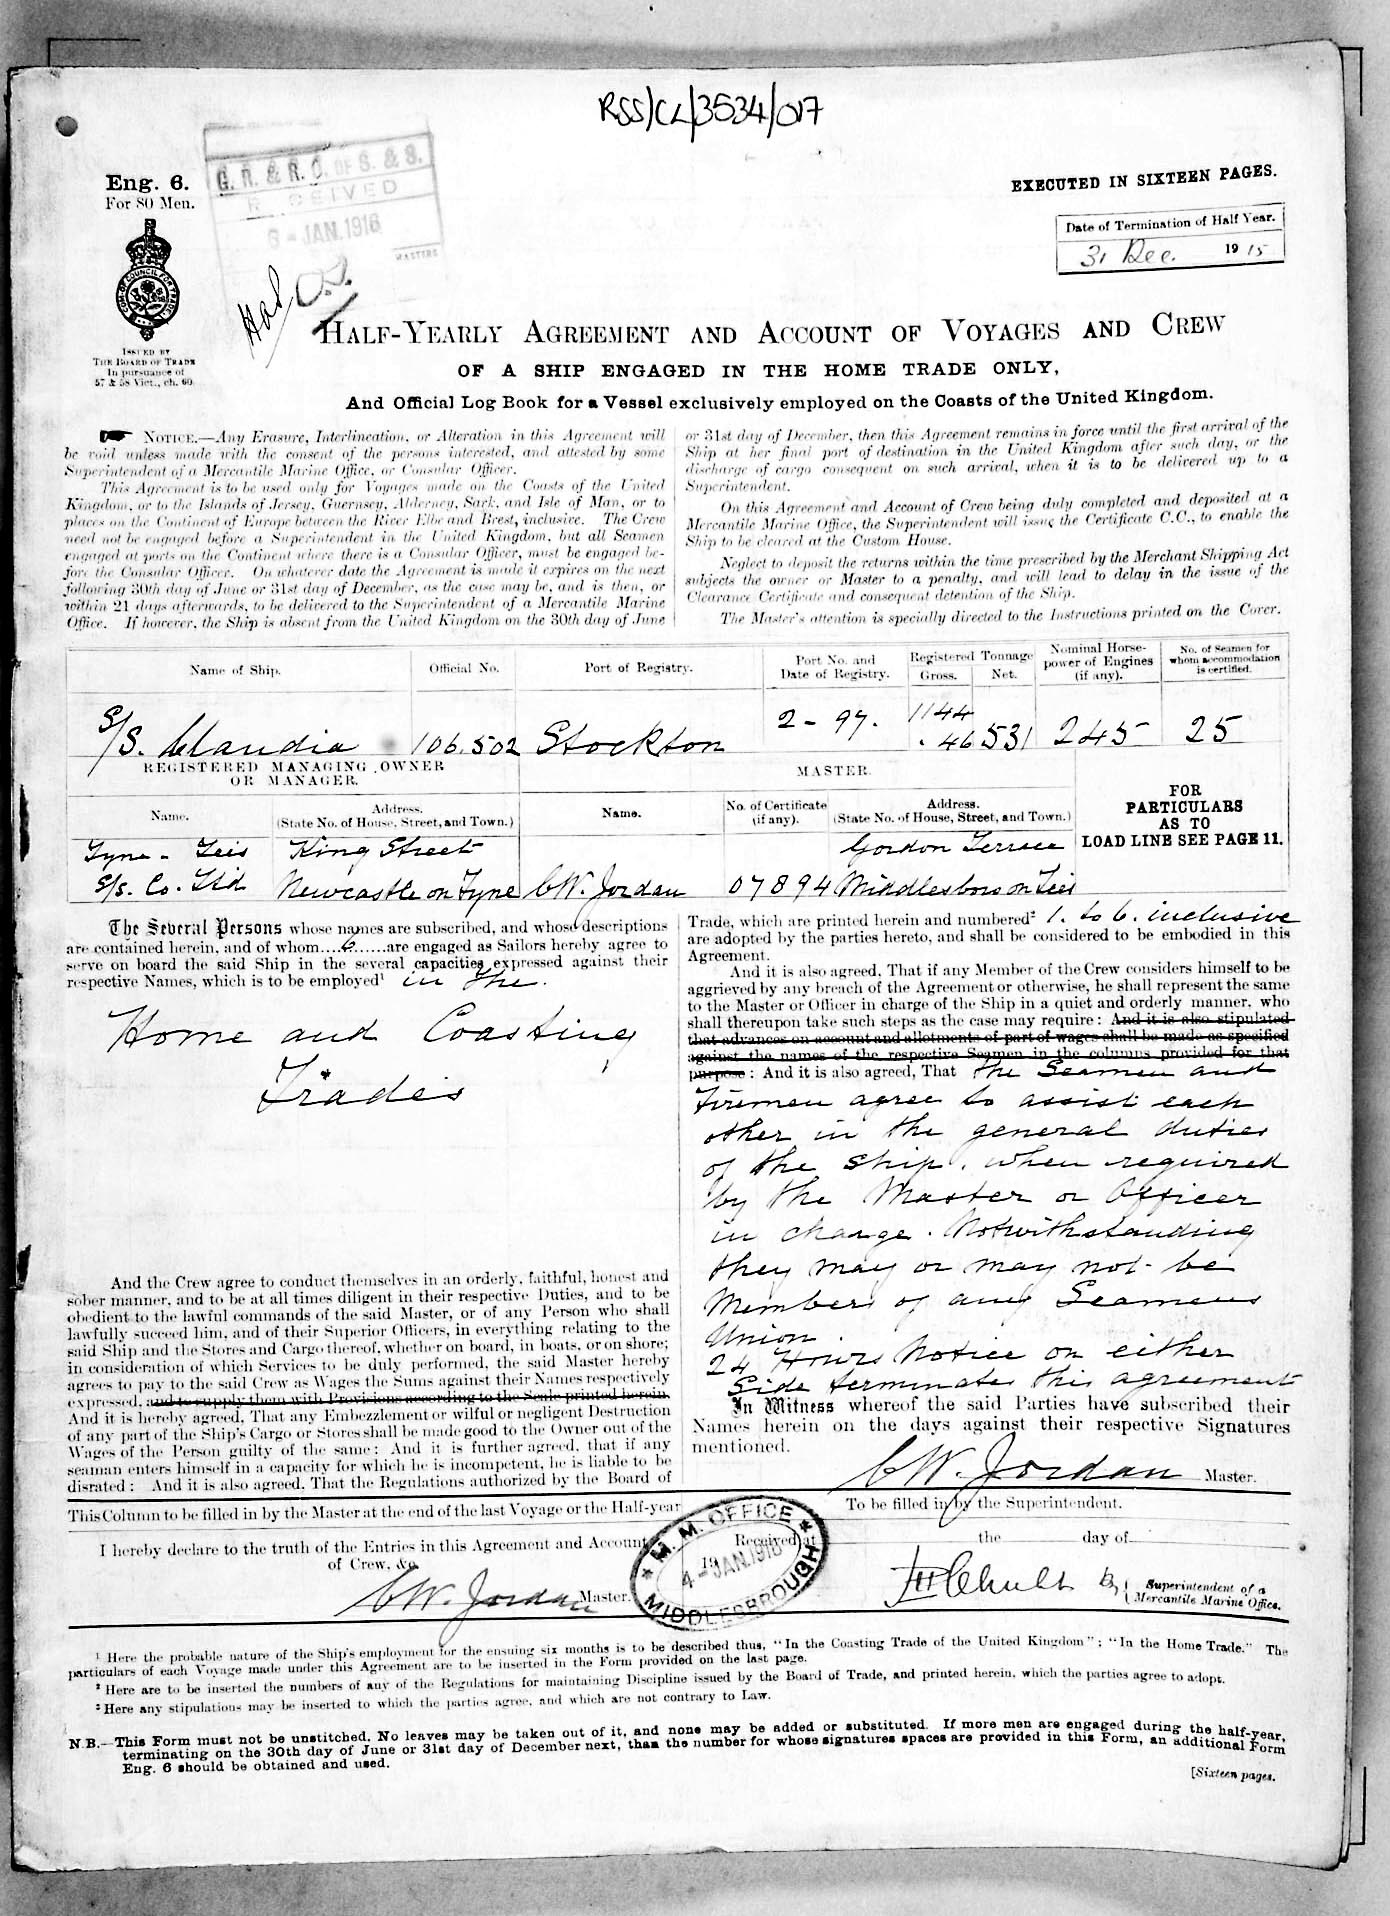 RSS/CL/3534/017
Eng. 6.
For 80 Men.
G. R. & R. O. OF S. & S.
RECEIVED
6 - JAN. 1916
MASTERS
EXECUTED IN SIXTEEN PAGES.
Date of Termination of Half Year.
31 Dec. 1915
COM. OF COUNCIL FOR TRADE
ISSUED BY
THE BOARD OF TRADE
In pursuance of
57 & 58 Vict., ch. 60.
HALF-YEARLY AGREEMENT AND ACCOUNT OF VOYAGES AND CREW
OF A SHIP ENGAGED IN THE HOME TRADE ONLY,
And Official Log Book for a Vessel exclusively employed on the Coasts of the United Kingdom.
NOTICE.—Any Erasure, Interlineation, or Alteration in this Agreement will
be void unless made with the consent of the persons interested, and attested by some
Superintendent of a Mercantile Marine Office, or Consular Officer.
This Agreement is to be used only for Voyages made on the Coasts of the United
Kingdom, or to the Islands of Jersey, Guernsey, Alderney, Sark, and Isle of Man, or to
places on the Continent of Europe between the River Elbe and Brest, inclusive. The Crew
need not be engaged before a Superintendent in the United Kingdom, but all Seamen
engaged at ports on the Continent where there is a Consular Officer, must be engaged be-
fore the Consular Officer. On whatever date the Agreement is made it expires on the next
following 30th day of June or 31st day of December, as the case may be, and is then, or
within 21 days afterwards, to be delivered to the Superintendent of a Mercantile Marine
Office. If however, the Ship is absent from the United Kingdom on the 30th day of June
or 31st day of December, then this Agreement remains in force until the first arrival of the
Ship at her final port of destination in the United Kingdom after such day, or the
discharge of cargo consequent on such arrival, when it is to be delivered up to a
Superintendent.
On this Agreement and Account of Crew being duly completed and deposited at a
Mercantile Marine Office, the Superintendent will issue the Certificate C.C., to enable the
Ship to be cleared at the Custom House.
Neglect to deposit the returns within the time prescribed by the Merchant Shipping Act
subjects the owner or Master to a penalty, and will lead to delay in the issue of the
Clearance Certificate and consequent detention of the Ship.
The Master's attention is specially directed to the Instructions printed on the Cover.
Name of Ship. Official No. Port of Registry. Port No. and Date of Registry. Registered Tonnage Gross. Net. Nominal Horse-power of Engines (if any). No. of Seamen for whom accommodation is certified.
S/S. Claudia 106.502 Stockton 2 - 97. 1144 .46 531 245 25
REGISTERED MANAGING OWNER
OR MANAGER.
MASTER.
Name. Address. (State No. of House, Street, and Town.) Name. No. of Certificate (if any). Address. (State No. of House, Street, and Town.)
FOR
PARTICULARS
AS TO
LOAD LINE SEE PAGE 11.
Tyne - Teis King Street Gordon Terrace
S/s. Co. Ltd Newcastle on Tyne CW. Jordan 07894 Middlesboro on Teis
The Several Persons whose names are subscribed, and whose descriptions
are contained herein, and of whom...6......are engaged as Sailors hereby agree to
serve on board the said Ship in the several capacities expressed against their
respective Names, which is to be employed¹ in the.
Home and Coasting
Trades
And the Crew agree to conduct themselves in an orderly, faithful, honest and
sober manner, and to be at all times diligent in their respective Duties, and to be
obedient to the lawful commands of the said Master, or of any Person who shall
lawfully succeed him, and of their Superior Officers, in everything relating to the
said Ship and the Stores and Cargo thereof, whether on board, in boats, or on shore;
in consideration of which Services to be duly performed, the said Master hereby
agrees to pay to the said Crew as Wages the Sums against their Names respectively
expressed, and to supply them with Provisions according to the Scale printed herein.
And it is hereby agreed, That any Embezzlement or wilful or negligent Destruction
of any part of the Ship's Cargo or Stores shall be made good to the Owner out of the
Wages of the Person guilty of the same: And it is further agreed, that if any
seaman enters himself in a capacity for which he is incompetent, he is liable to be
disrated: And it is also agreed, That the Regulations authorized by the Board of
Trade, which are printed herein and numbered² 1. to 6. inclusive
are adopted by the parties hereto, and shall be considered to be embodied in this
Agreement.
And it is also agreed, That if any Member of the Crew considers himself to be
aggrieved by any breach of the Agreement or otherwise, he shall represent the same
to the Master or Officer in charge of the Ship in a quiet and orderly manner, who
shall thereupon take such steps as the case may require: And it is also stipulated
that advances on account and allotments of part of wages shall be made as specified
against the names of the respective Seamen in the columns provided for that
purpose: And it is also agreed, That the Seamen and
Firemen agree to assist each
other in the general duties
of the ship. when required
by the Master or Officer
in charge. Notwithstanding
they may or may not be
Members of any Seamens
Union.
24 Hours Notice on either
Side terminates this agreement
In Witness whereof the said Parties have subscribed their
Names herein on the days against their respective Signatures
mentioned.
CW. Jordan Master.
This Column to be filled in by the Master at the end of the last Voyage or the Half-year
I hereby declare to the truth of the Entries in this Agreement and Account
of Crew, &c.
CW. Jordan Master.
M. M. OFFICE
4 - JAN. 1916
MIDDLESBROUGH
To be filled in by the Superintendent.
Received at the day of
19
Superintendent of a
Mercantile Marine Office.
¹ Here the probable nature of the Ship's employment for the ensuing six months is to be described thus, "In the Coasting Trade of the United Kingdom"; "In the Home Trade." The
particulars of each Voyage made under this Agreement are to be inserted in the Form provided on the last page.
² Here are to be inserted the numbers of any of the Regulations for maintaining Discipline issued by the Board of Trade, and printed herein, which the parties agree to adopt.
³ Here any stipulations may be inserted to which the parties agree, and which are not contrary to Law.
N.B.—This Form must not be unstitched. No leaves may be taken out of it, and none may be added or substituted. If more men are engaged during the half-year,
terminating on the 30th day of June or 31st day of December next, than the number for whose signatures spaces are provided in this Form, an additional Form
Eng. 6 should be obtained and used.
[Sixteen pages.